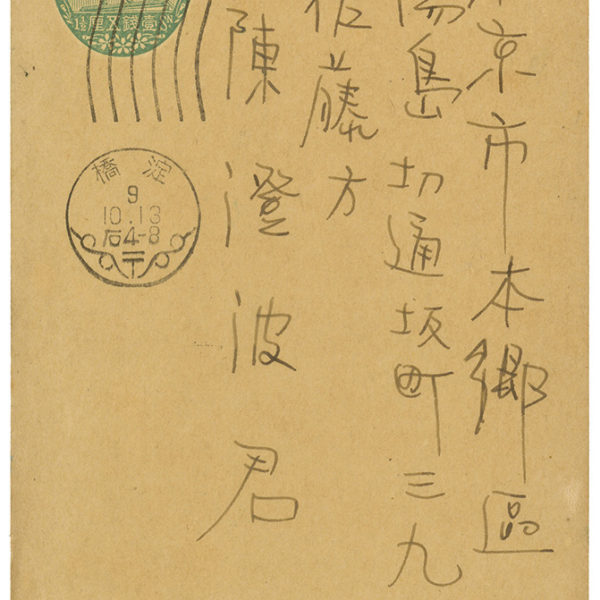 京市本郷區
島切通坂町三九
佐藤方
陳澄波君
壹錢五厘
淀橋
9
10.13
后4-8
〒